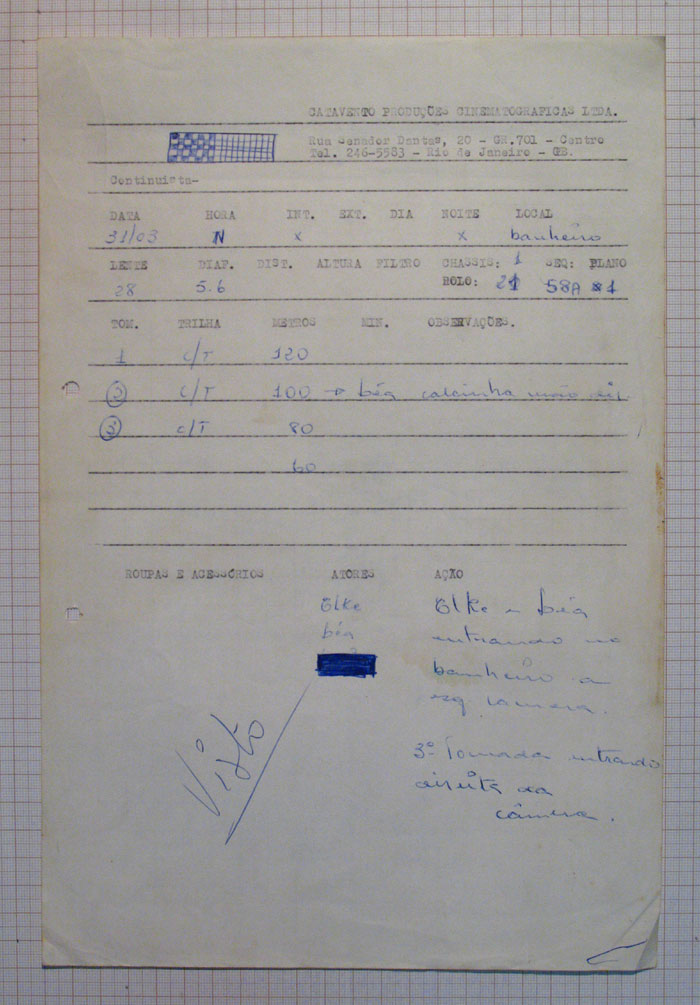 CATAVENTO PRODUÇÕES CINEMATOGRAFICAS LTDA.
Rua Senador Dantas, 20 - GR.701 - Centro
Tel. 246-5583 - Rio de Janeiro - GB.
Continuista-
DATA HORA INT. EXT. DIA NOITE LOCAL
31/03 N x x banheiro
LENTE DIAF. DIST. ALTURA FILTRO CHASSIS: 1 SEQ: PLANO
28 5.6 ROLO: 21 58A 1
TOM. TRILHA METROS MIN. OBSERVAÇÕES.
1 c/T 120
2 c/T 100 → béa calcinha mão
3 c/T 80
60
ROUPAS E ACESSÓRIOS ATORES AÇÃO
Elke Elke e béa
béa entrando no
banheiro a
esq camera.
Visto
3º tomada entrando
direita da
câmera.